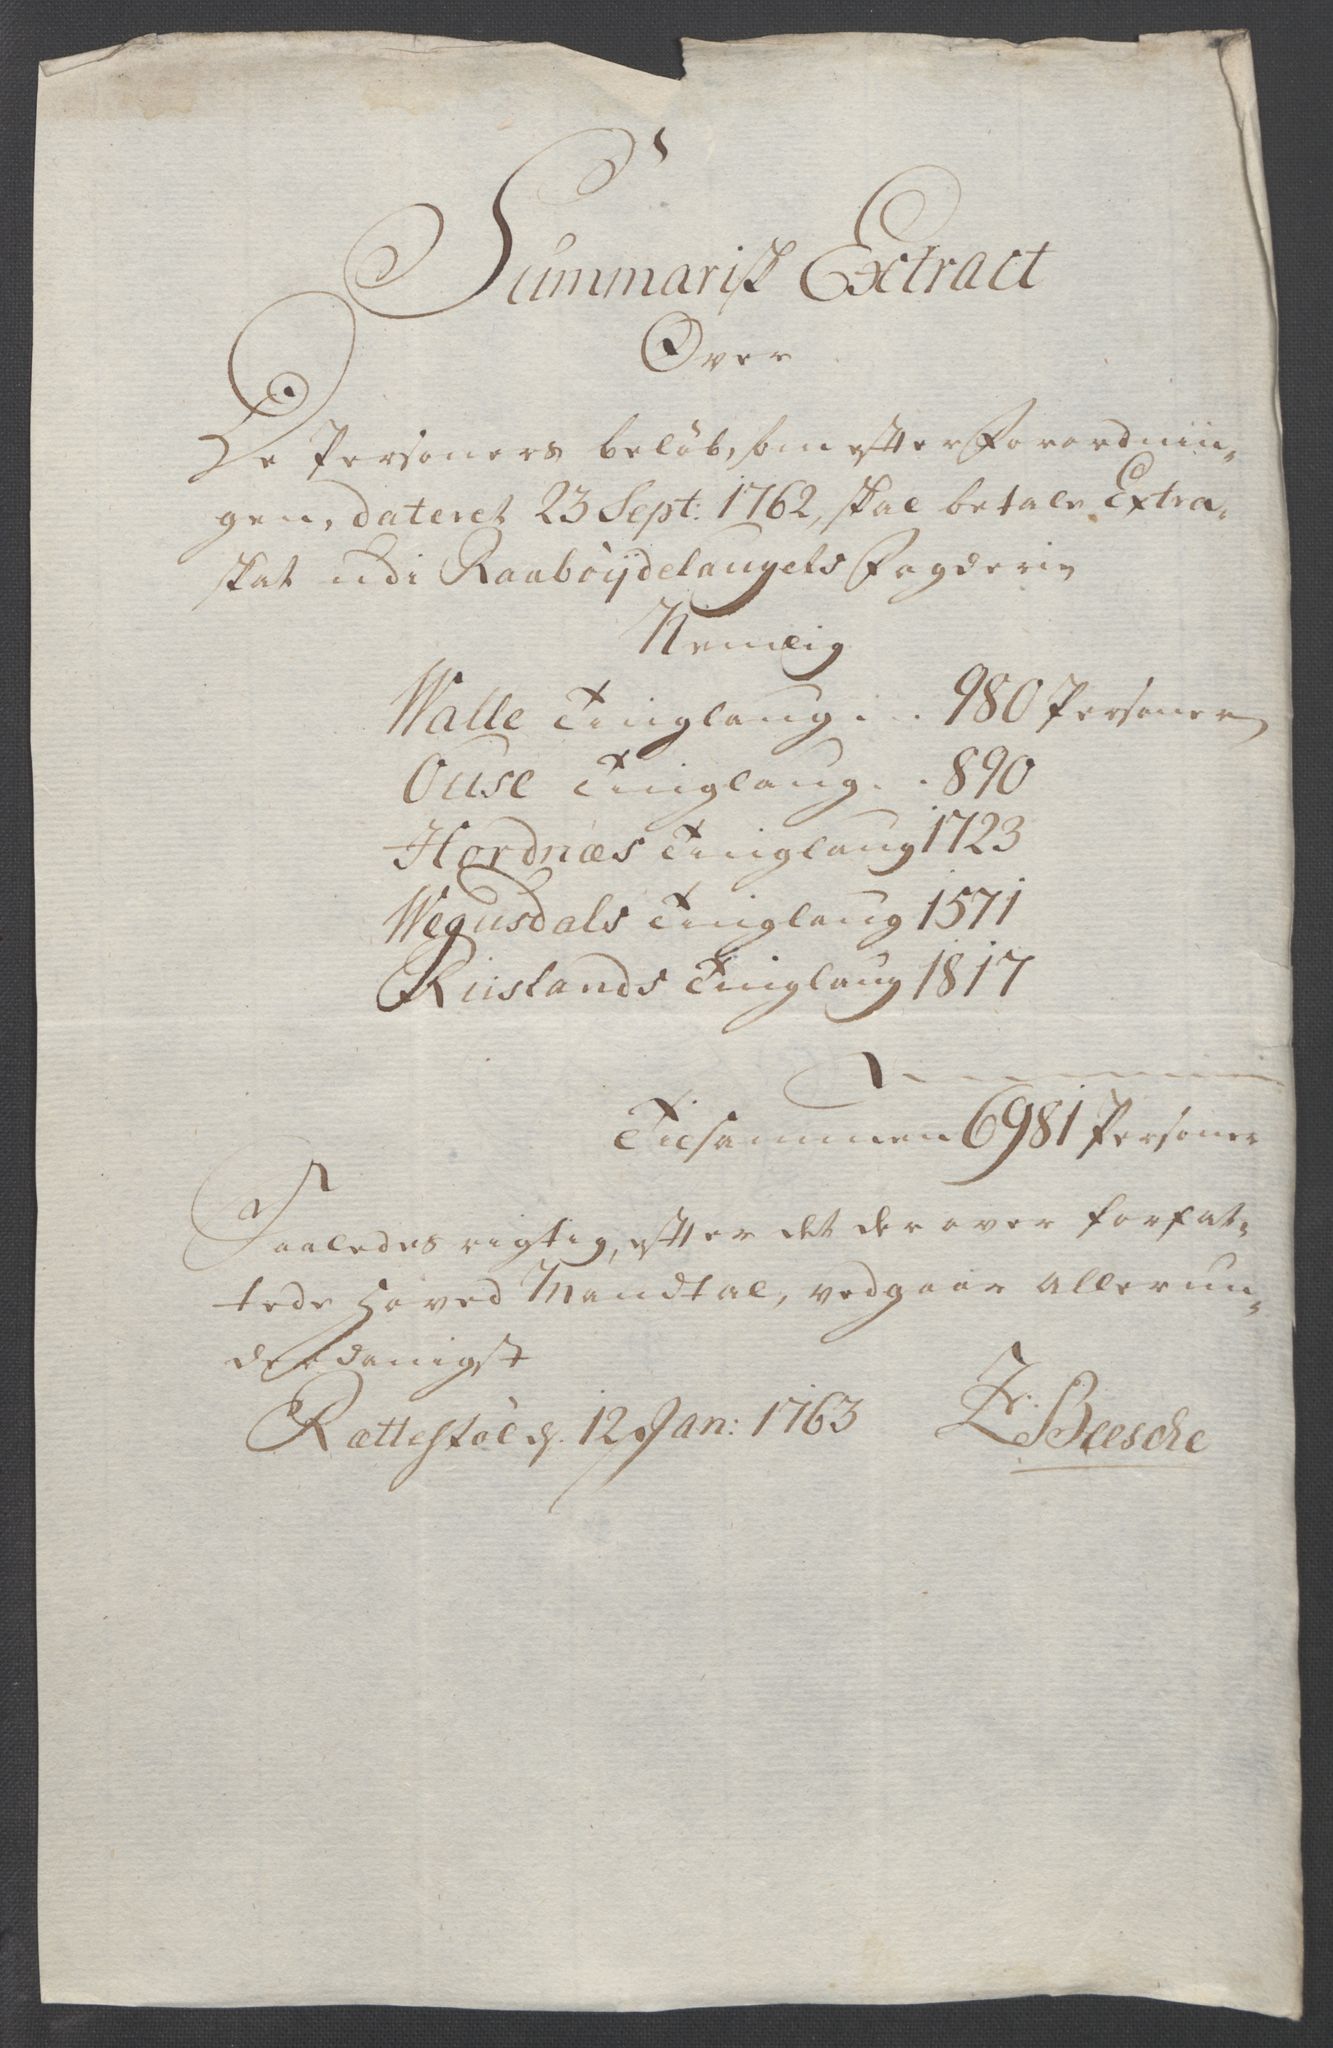 Summarisk Extract
Over
De Personers beløb, som efter Forordnin-
gen, dateret 23 Sept: 1762, skal betale Extra-
skat udi Raabÿdelaugets Fogderie
Nemlig
Walle Tinglaug . . 980 Personer
Ouse Tinglaug . . 890
Hordnæs Tinglaug 1723
Wegusdals Tinglaug 1571
Riislands Tinglaug 1817
Tilsammen 6981 Personer
Saaledes rigtig, efter det derover forfat-
tede Hoved Mandtal, vedgaar allerun-
derdanigst
Rættestøl d. 12 Jan: 1763